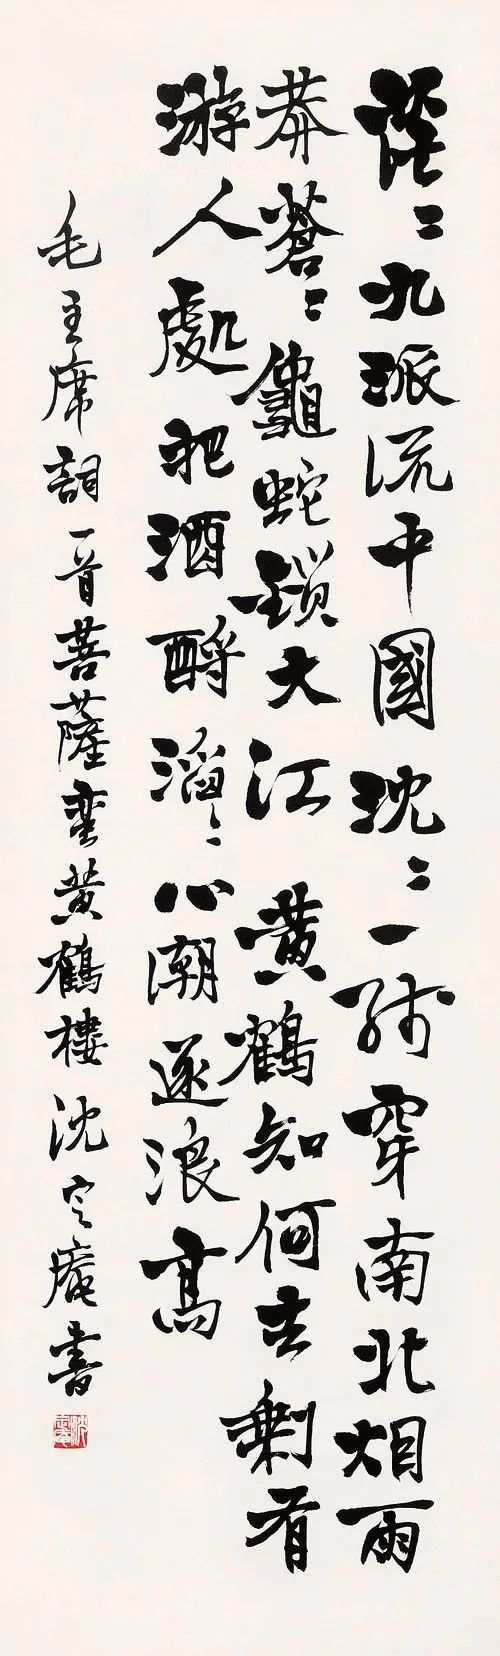 茫〻九派流中國沈〻一綫穿南北烟雨
莽蒼〻龜蛇鎖大江 黃鶴知何去剩有
游人處把酒酹滔〻心潮逐浪高
毛主席詞一首菩薩蛮黃鶴樓 沈定庵書